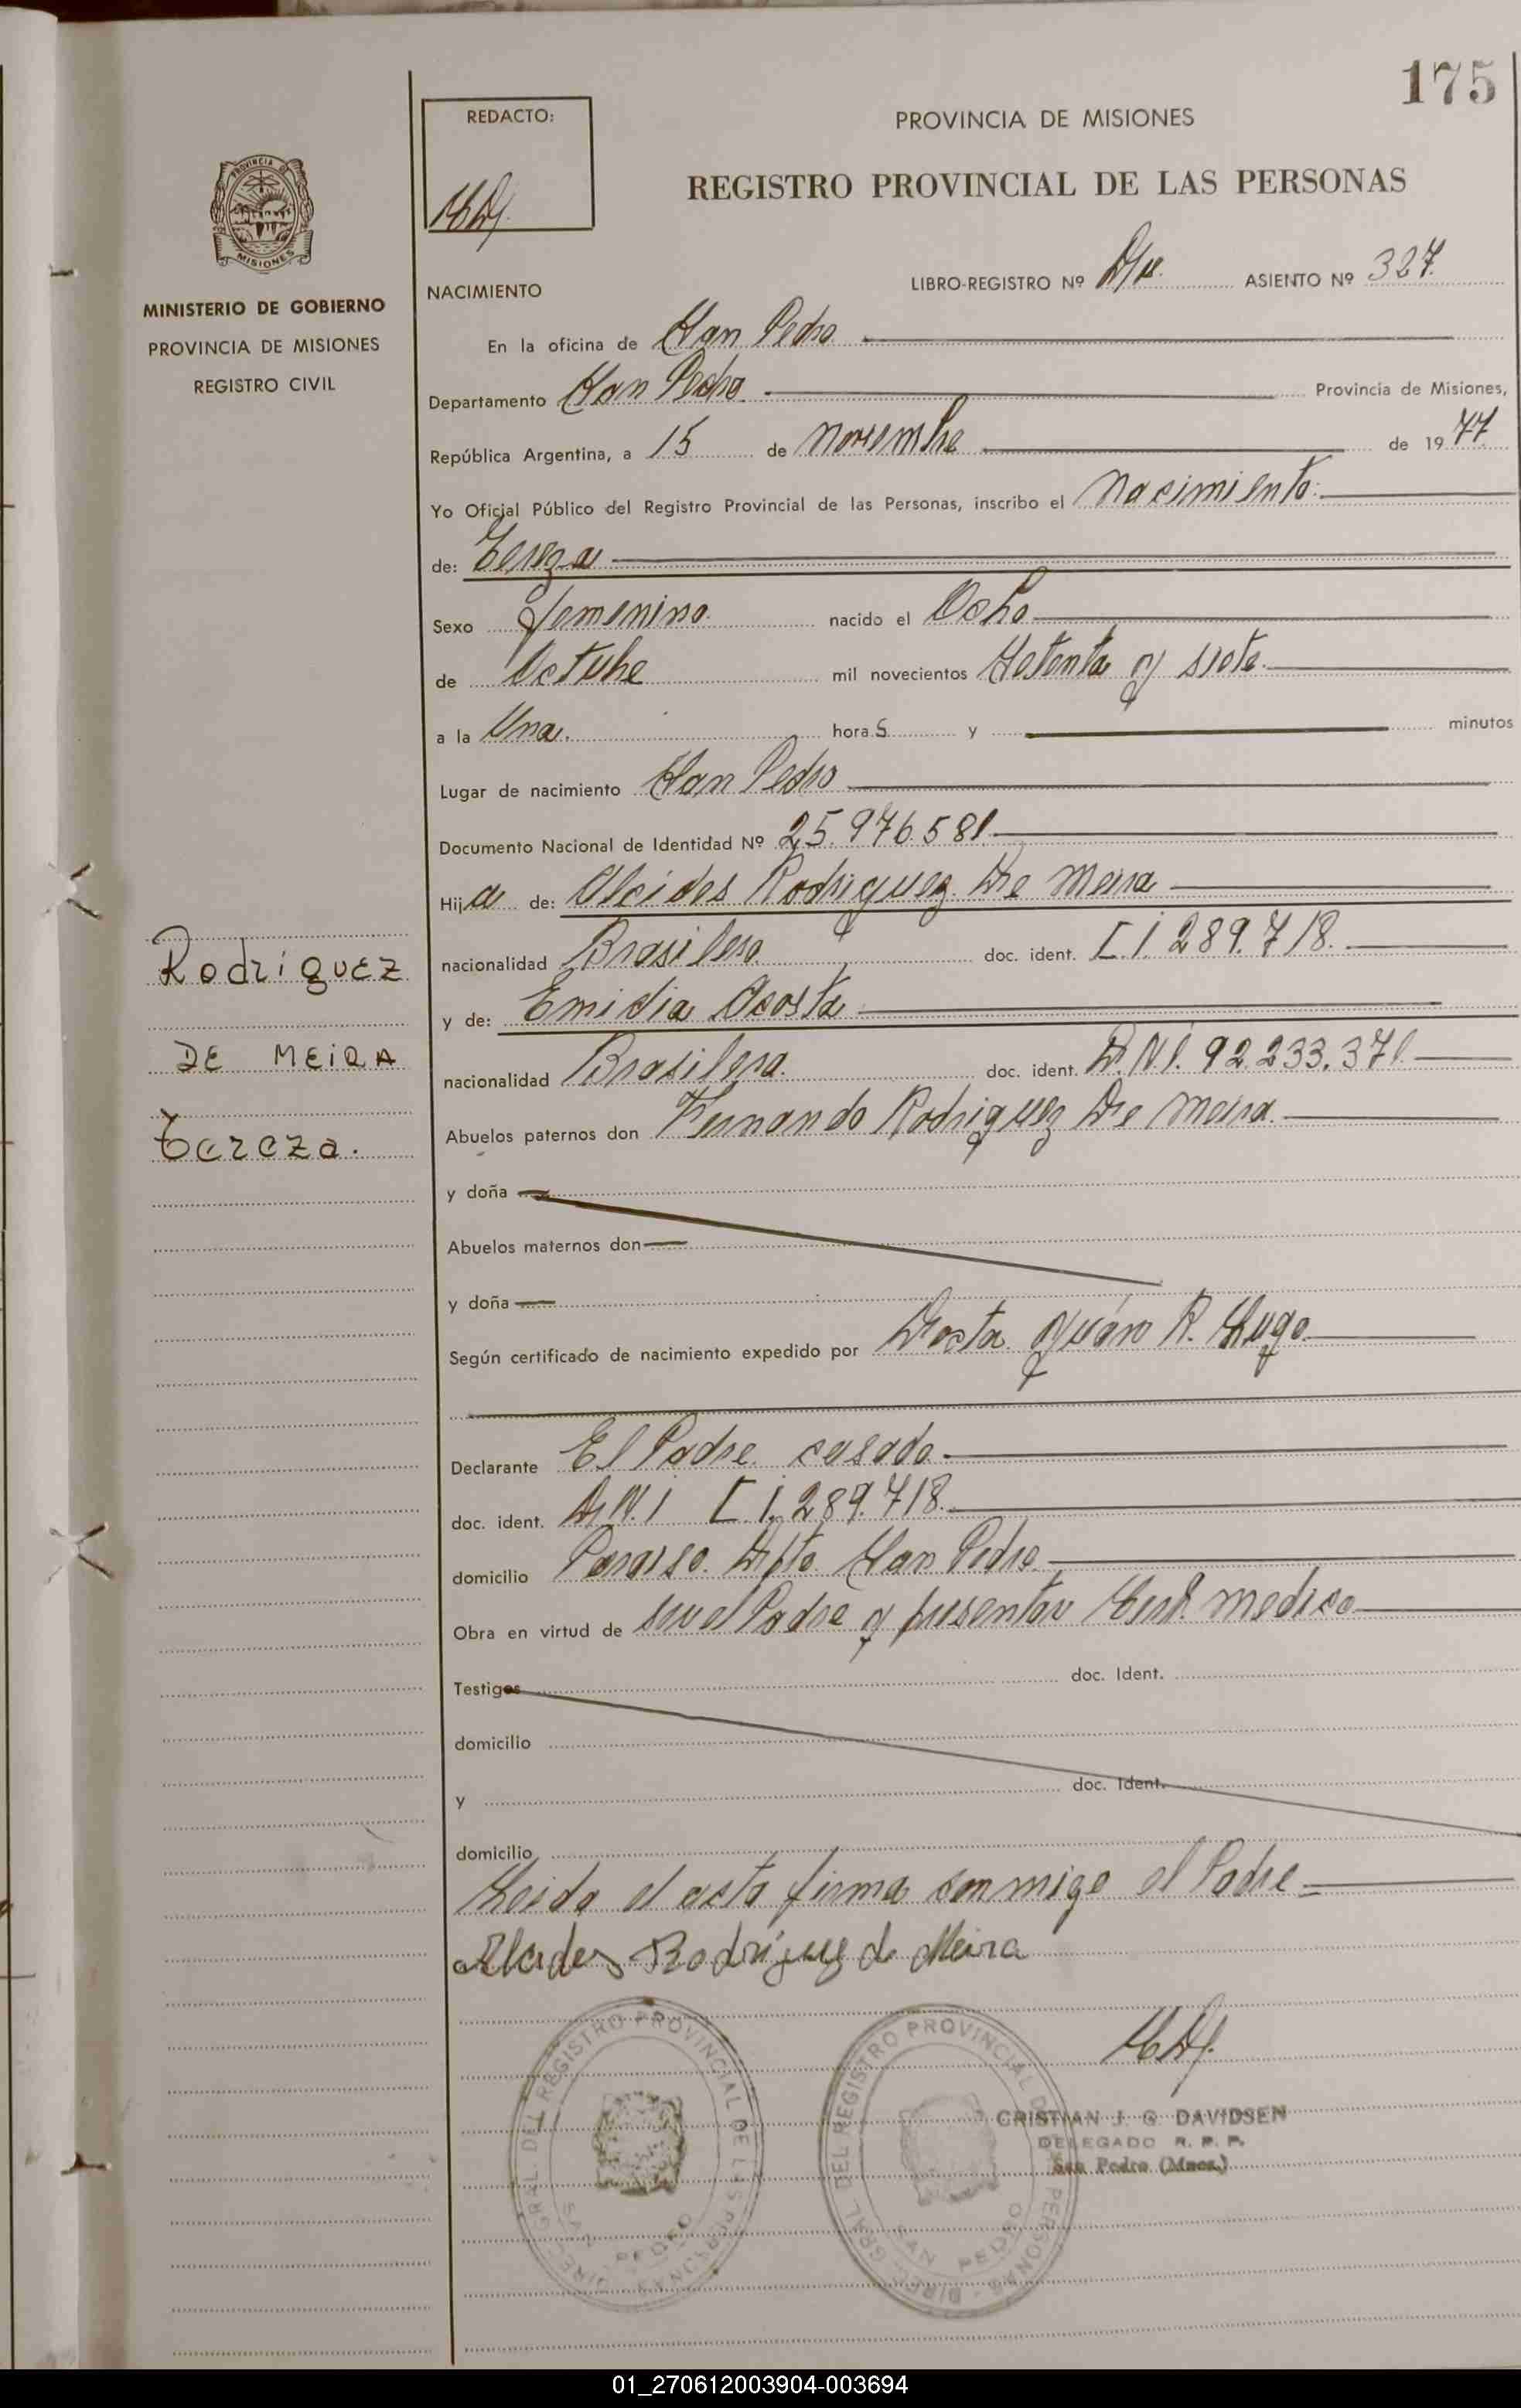 175
REDACTO:
PROVINCIA DE MISIONES
REGISTRO PROVINCIAL DE LAS PERSONAS
PROVINCIA DE
MISIONES
MINISTERIO DE GOBIERNO
PROVINCIA DE MISIONES
REGISTRO CIVIL
LIBRO-REGISTRO Nº ASIENTO Nº 327.
NACIMIENTO
En la oficina de San Pedro
Departamento San Pedro Provincia de Misiones,
República Argentina, a 15 de noviembre de 1977
Yo Oficial Público del Registro Provincial de las Personas, inscribo el nacimiento:
de: Tereza
Sexo femenino. nacido el Ocho
de Octubre mil novecientos Setenta y siete.
a la Una. horas y minutos
Lugar de nacimiento San Pedro
Documento Nacional de Identidad Nº 25.976.581.
Hija de: Alcides Rodriguez De Meira
nacionalidad Brasilera doc. ident. C.I. 289.718.
y de: Emidia Acosta
nacionalidad Brasilera. doc. ident. D.N.I. 92.233.371.
Abuelos paternos don Fernando Rodriguez De Meira.
y doña
Abuelos maternos don
y doña
Según certificado de nacimiento expedido por Juan R. Lugo
Declarante El Padre. casado.
doc. ident. D.N.I C.I. 289.718.
domicilio Paraiso. Dpto. San Pedro.
Obra en virtud de ser el Padre y presentar Cert. medico
Testigos doc. Ident.
domicilio
y doc. Ident.
domicilio
Leida el acta firma conmigo el Padre =
Alcides Rodríguez de Meira
Rodriguez
DE MEIRA
Tereza.
DIREC. GRAL. DEL REGISTRO PROVINCIAL DE LAS PERSONAS
SAN PEDRO
DIREC. GRAL. DEL REGISTRO PROVINCIAL DE LAS PERSONAS
SAN PEDRO
CRISTIAN J. G. DAVIDSEN
DELEGADO R. P. P.
San Pedro (Mnes.)
01_270612003904-003694